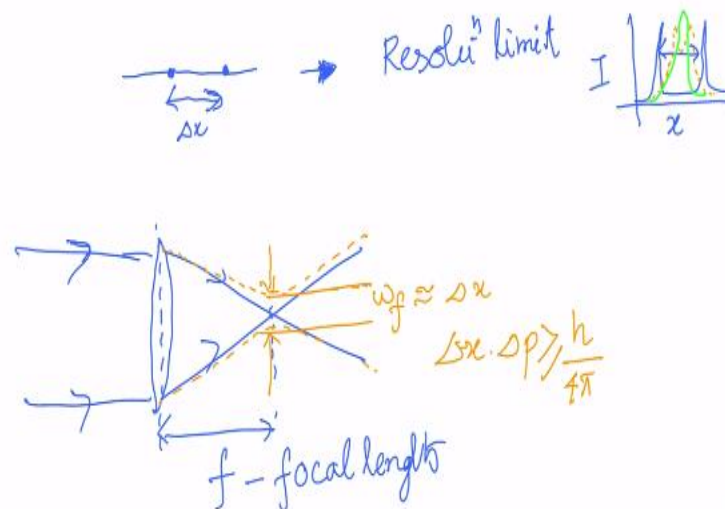 Resoluⁿ limit
I
x
Δx
w_f ≈ Δx
Δx · Δp ≥ h/4π
f - focal length